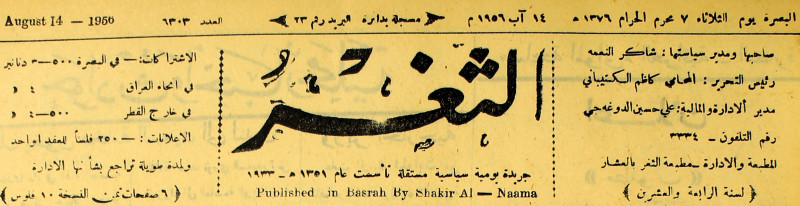 البصرة يوم الثلاثاء ٧ محرم الحرام ١٣٧٦ هـ ١٤ آب ١٩٥٦ م مسجلة بدائرة البريد رقم ٢٣ العدد ٦٣٠٣ August 14 — 1956
صاحبها ومدير سياستها : شاكر النعمه
رئيس التحرير : المحامي كاظم الكشتيباني
مدير الادارة والمالية : علي حسين الدوغه جي
رقم التلفون - ٣٣٣٤
المطبعة والادارة - مطبعة الثغر بالعشار
﴿ لسنة الرابعة والعشرين ﴾
الثغر
جريدة يومية سياسية مستقلة تأسست عام ١٣٥١ هـ - ١٩٣٣
Published in Basrah By Shakir Al — Naama
الاشتراكات :— في البصرة ٥٠٠—٣ دنانير
في انحاء العراق ٤ »
في خارج القطر ٥٠٠—٤ »
الاعلانات : — ٢٥٠ فلساً للعقد الواحد
ولمدة طويلة تراجع بشأنها الادارة
﴿ ٦ صفحات ثمن النسخة ١٠ فلوس ﴾